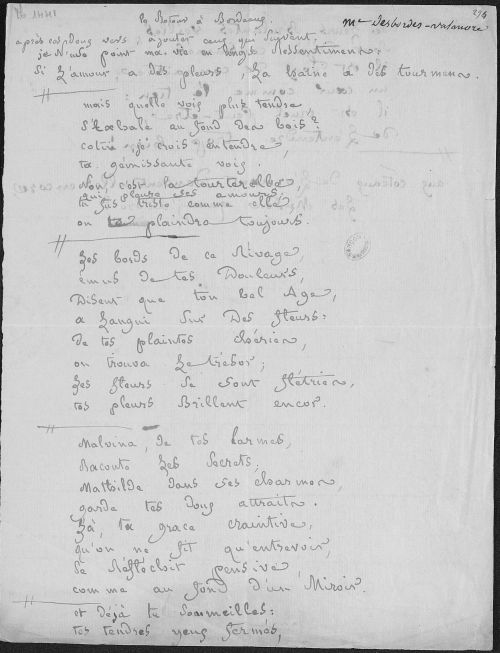 le Retour à Bordeaux
Mme Desbordes-Valmore
294
après ces doux vers, ajouter ceux qui suivent,
je n'use point ma vie en longs Ressentimens.
Si l'amour a des pleurs, la haine a des tourmens.
mais quelle voix plus tendre
S'Exhale au fond des bois?
colié, je crois entendre,
ta gémissante voix.
Non c'est la tourterelle
qui pleure ses amours.
tu fus triste comme elle
on te plaindra toujours.
Les bords de ce Rivage,
émus de tes Douleurs,
Disent que ton bel Age,
a Langui sur Des fleurs:
de tes plaintes chéries,
on trouva le trésor;
Les fleurs se sont flétries,
tes pleurs Brillent encor.
Malvina, de tes larmes,
Raconte les secrets;
Mathilde dans ses charmes,
garde tes doux attraits.
Là, ta grace craintive,
qu'on ne fit qu'entrevoir,
se Réfléchit pensive
comme au fond d'un Miroir.
et déjà tu sommeilles:
tes tendres yeux fermés,